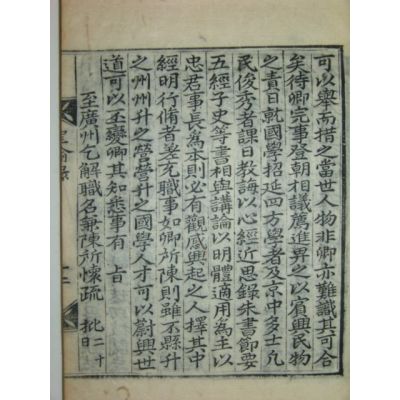 可以舉而措之當世人物非卿亦難識其可合
矣待卿完事登朝相議薦進畀之以賓興民物
之責日就國學招延四方學者及京中多士凡
民俊秀者課日教誨以心經近思錄朱書節要
五經子史等書相與講論以明體適用為主以
忠君事長為本則必有觀感興起之人擇其中
經明行脩者差充職事如卿所陳則雖不縣升
之州州升之營營升之國學人才可以蔚興世
道可以丕變卿其知悉事有 旨
至廣州乞解職名兼陳所懷疏 二十批日